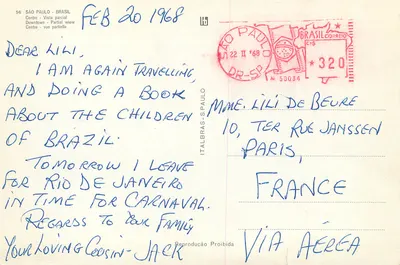 94 SÃO PAULO - BRASIL
FEB 20 1968
DEAR LILI,
I AM AGAIN TRAVELLING,
AND DOING A BOOK
ABOUT THE CHILDREN
OF BRAZIL.
TOMORROW I LEAVE
FOR RIO DE JANEIRO
IN TIME FOR CARNAVAL.
REGARDS TO YOUR FAMILY
YOUR LOVING COUSIN - JACK
ITALBRAS - S. PAULO
Reprodução Proibida
SÃO PAULO
22 II 68
DR-SP
BRASIL CORREIO
* 320
MME. LILI DE BEURE
10, TER RUE JANSSEN
PARIS,
FRANCE
VIA AÉREA